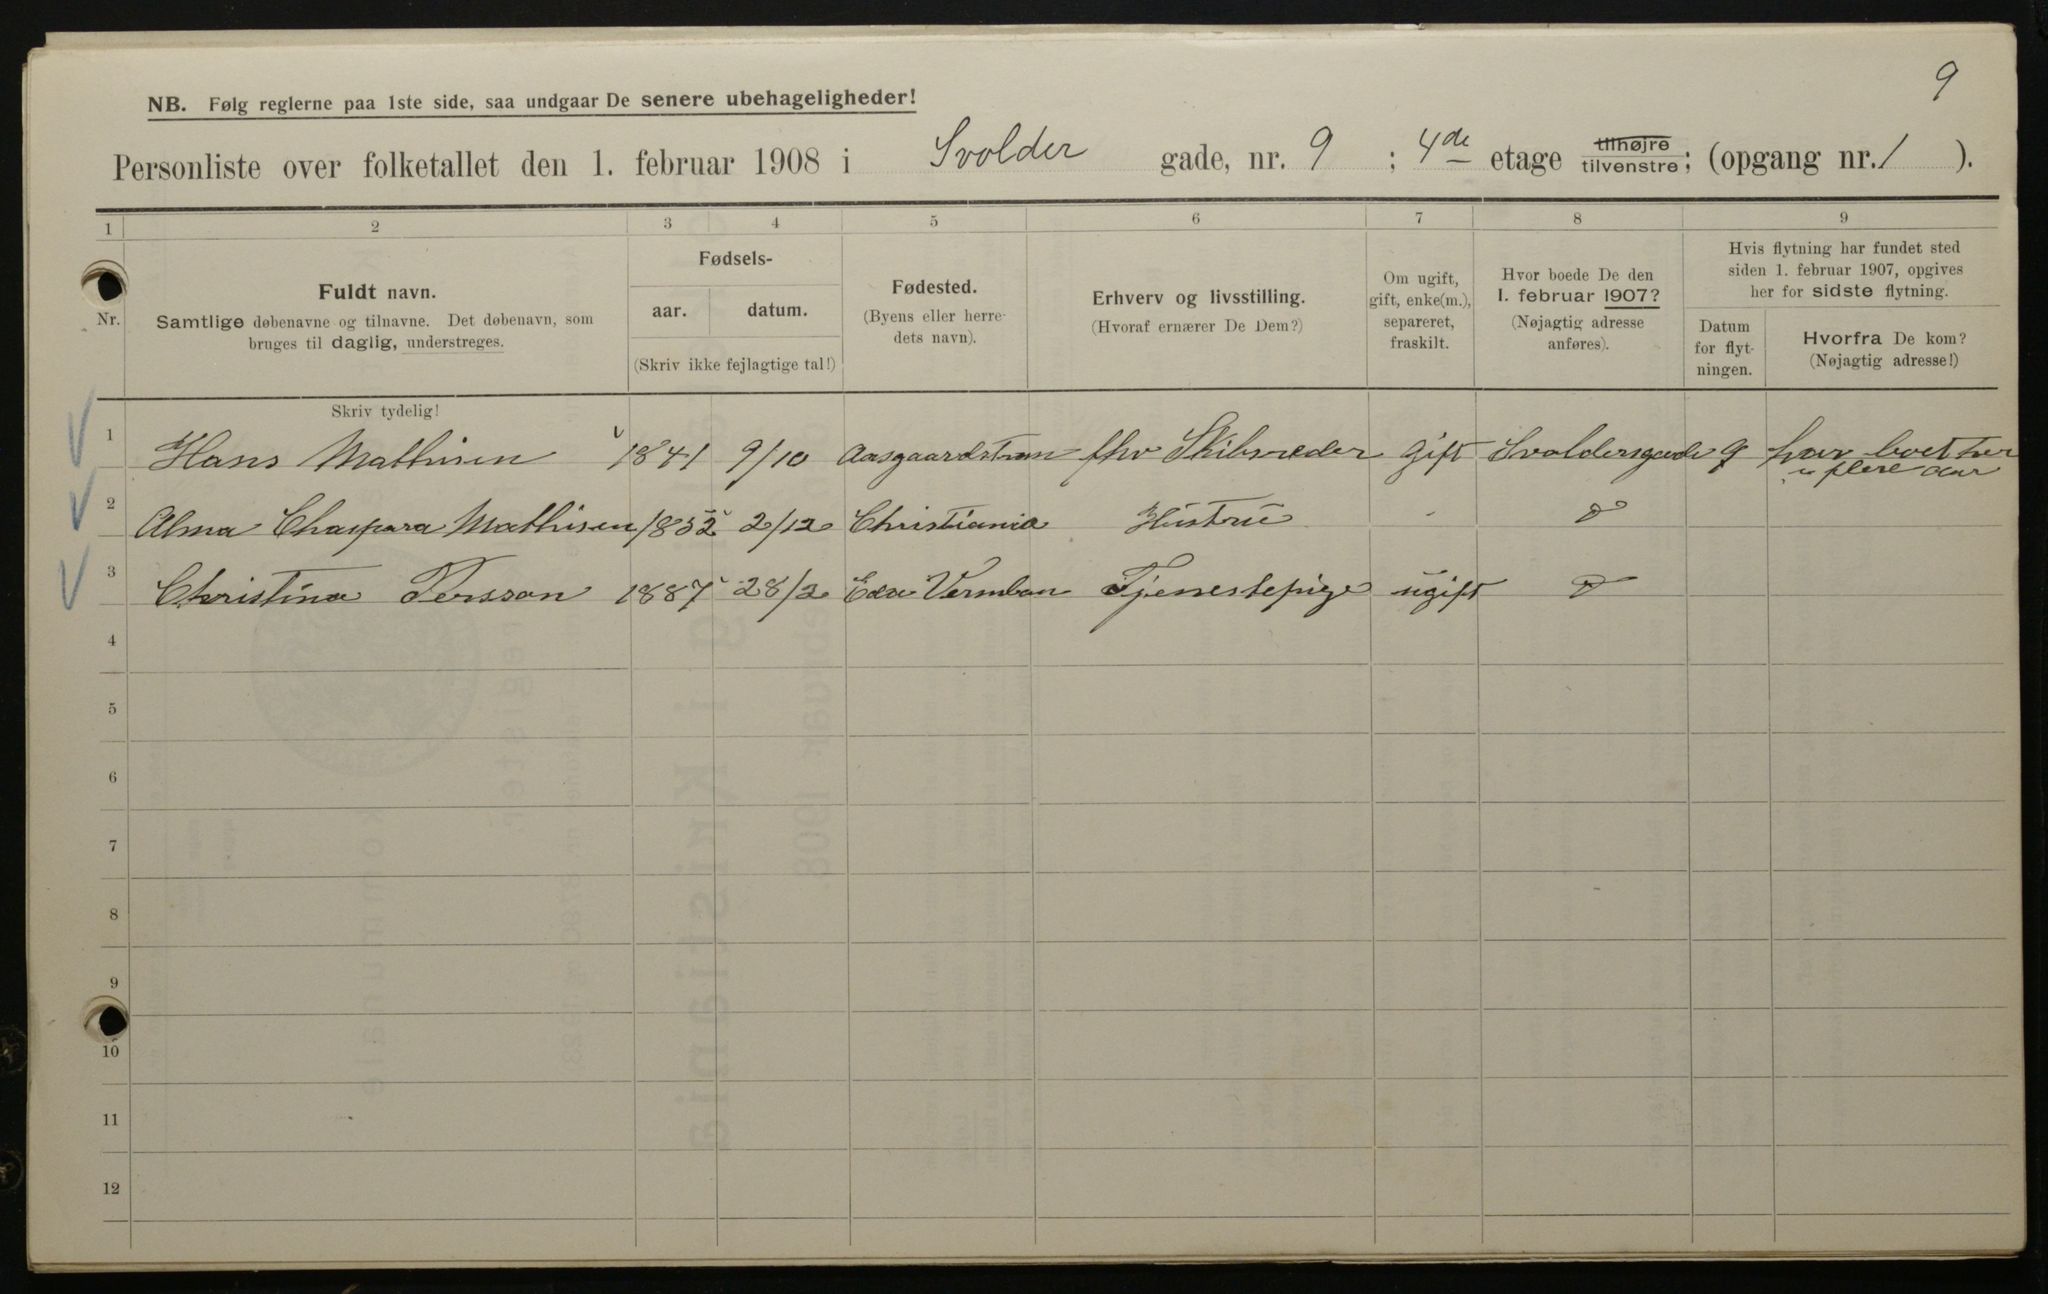 9
NB. Følg reglerne paa 1ste side, saa undgaar De senere ubehageligheder!
Personliste over folketallet den 1. februar 1908 i Svolder gade, nr. 9 ; 4de etage tilhøjre tilvenstre; (opgang nr. 1 ).
1 2 3 4 5 6 7 8 9
Nr.
Fuldt navn.
Samtlige døbenavne og tilnavne. Det døbenavn, som
bruges til daglig, understreges.
Fødsels-
aar. datum.
(Skriv ikke fejlagtige tal!)
Fødested.
(Byens eller herre-
dets navn).
Erhverv og livsstilling.
(Hvoraf ernærer De Dem?)
Om ugift,
gift, enke(m.),
separeret,
fraskilt.
Hvor boede De den
1. februar 1907?
(Nøjagtig adresse
anføres).
Hvis flytning har fundet sted
siden 1. februar 1907, opgives
her for sidste flytning.
Datum
for flyt-
ningen.
Hvorfra De kom?
(Nøjagtig adresse!)
Skriv tydelig!
1 Hans Mathisen 1841 9/10 Aasgaardstran fhv Skibsreder gift Svoldersgade 9 har boet her
i flere aar
2 Alma Mathisen 1852 2/12 Christiania Hustru
3 Christina Persson 1887 28/2 Eda Vermlan Tjenestepige ugift
4
5
6
7
8
9
10
11
12